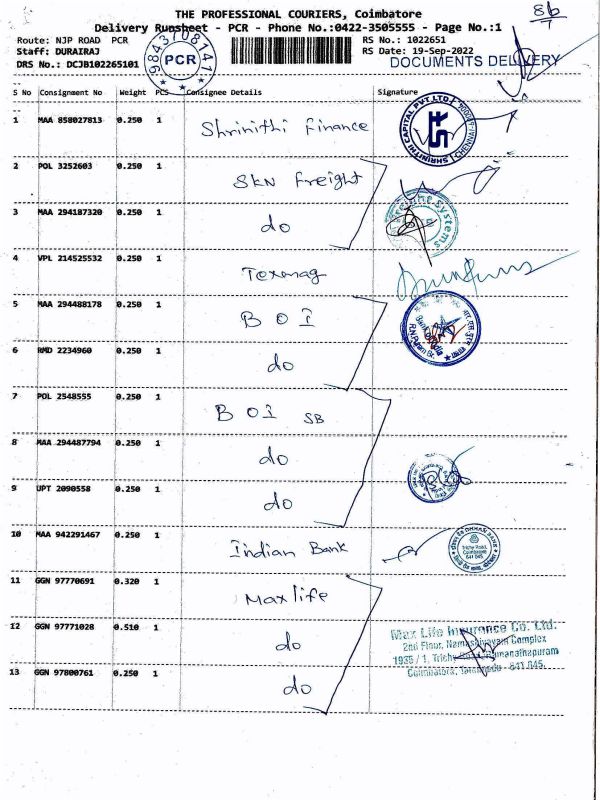 THE PROFESSIONAL COURIERS, Coimbatore
86/1
Delivery Runsheet - PCR - Phone No.:0422-3505555 - Page No.:1
Route: NJP ROAD PCR
RS No.: 1022651
Staff: DURAIRAJ
RS Date: 19-Sep-2022
DRS No.: DCJB102265101
DOCUMENTS DELIVERY
9843708141
PCR
S No Consignment No Weight PCS Consignee Details Signature
1 MAA 858027813 0.250 1 Shrinithi Finance
SHRINITHI CAPITAL PVT LTD
CHENNAI
2 POL 3252603 0.250 1 SKN Freight
3 MAA 294187320 0.250 1 do
Systems
4 VPL 214525532 0.250 1 Texmag
5 MAA 294488178 0.250 1 BOI
6 RMD 2234960 0.250 1 do
7 POL 2548555 0.250 1 BOI SB
8 MAA 294487794 0.250 1 do
9 UPT 2090558 0.250 1 do
10 MAA 942291467 0.250 1 Indian Bank
Trichy Road,
Coimbatore
641 045
11 GGN 97770691 0.320 1 Maxlife
12 GGN 97771028 0.510 1 do
Max Life Insurance Co. Ltd.
2nd Floor, Namashivayam Complex
1935 / 1, Trichy Road, Ramanathapuram
Coimbatore, Tamilnadu - 641 045.
13 GGN 97800761 0.250 1 do